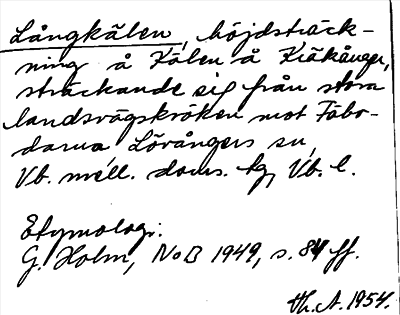 Långkälen, höjdsträck-
ning å Kälen å Kräkånger,
sträckande sig från stora
landsvägskröken mot Fäbo-
darna Lövångers sn,
Vb. mell. doms. tg, Vb. l.
Etymologi.
G. Holm, NoB 1949, s. 84 ff.
Th. A. 1954.